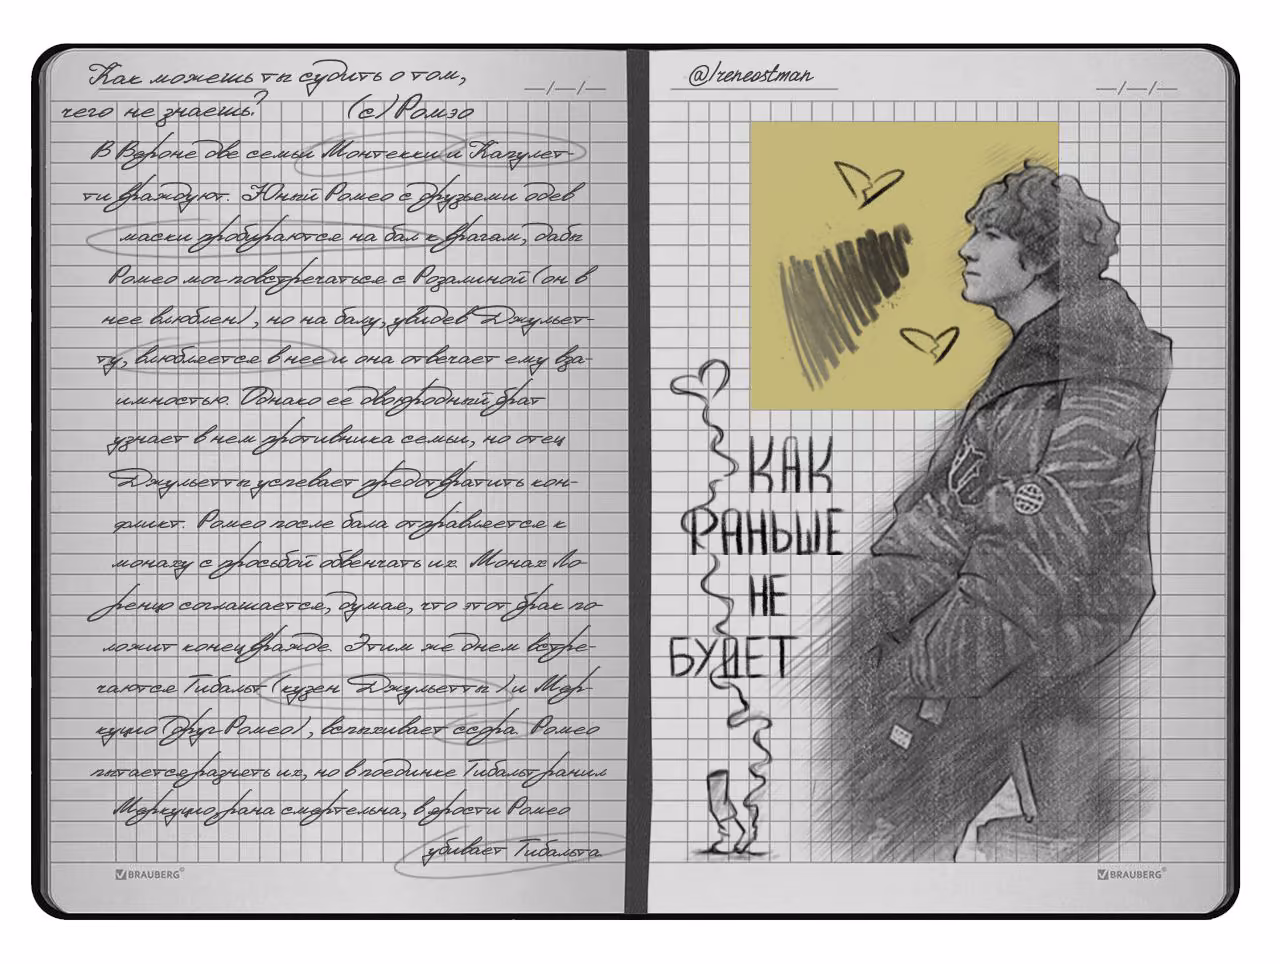 Как можешь ты судить о том,
чего не знаешь?
(с) Ромэо
В Вероне две семьи Монтекки и Капулет-
ти враждуют. Юный Ромео с друзьями одев
маски пробираются на бал к врагам, дабы
Ромео мог повстречаться с Розалиной (он в
нее влюблен), но на балу, увидев Джульет-
ту, влюбляется в нее и она отвечает ему вза-
имностью. Однако ее двоюродный брат
узнает в нем противника семьи, но отец
Джульетты успевает предотвратить кон-
фликт. Ромео после бала отправляется к
монаху с просьбой обвенчать их. Монах Ло-
ренцо соглашается, думая, что этот брак по-
ложит конец вражде. Этим же днем встре-
чаются Тибальт (кузен Джульетты) и Мер-
куцио (друг Ромео), вспыхивает ссора. Ромео
пытается разнять их, но в поединке Тибальт ранил
Меркуцио, рана смертельна, в ярости Ромео
убивает Тибальта.
BRAUBERG®
@/reneostman
__/__/__
__/__/__
КАК
РАНЬШЕ
НЕ
БУДЕТ
BRAUBERG®